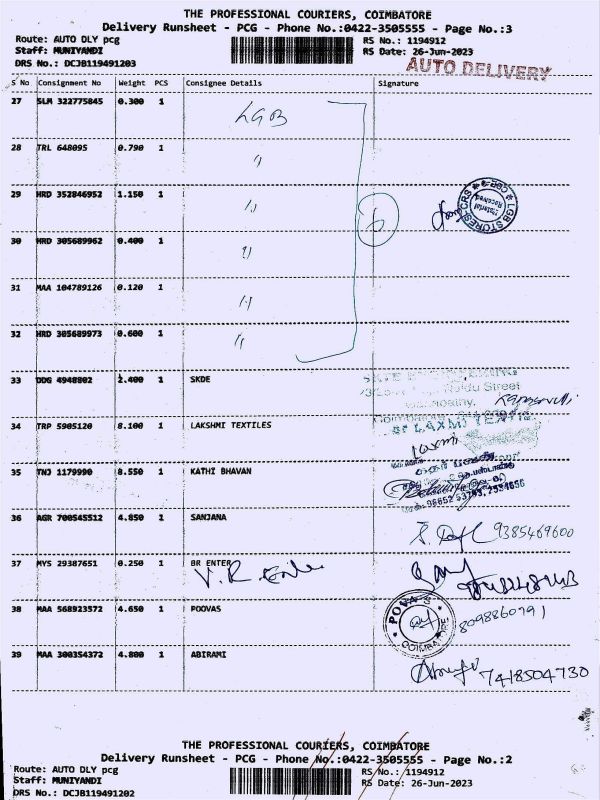 THE PROFESSIONAL COURIERS, COIMBATORE
Delivery Runsheet - PCG - Phone No.:0422-3505555 - Page No.:3
Route: AUTO DLY pcg
RS No.: 1194912
Staff: MUNIYANDI
RS Date: 26-Jun-2023
DRS No.: DCJB119491203
AUTO DELIVERY
S No Consignment No Weight PCS Consignee Details Signature
27 SLM 322775845 0.300 1 LGB
28 TRL 648095 0.790 1 "
29 HRD 352846952 1.150 1 "
LGB STORES
Material Received
30 HRD 305689962 0.400 1 "
6
31 MAA 104789126 0.120 1 "
32 HRD 305689973 0.600 1 "
33 DDG 4948802 2.400 1 SKDE
Street
34 TRP 5905120 8.100 1 LAKSHMI TEXTILES
LAXMI
Laxmi
35 TNJ 1179990 8.550 1 KATHI BHAVAN
36 AGR 700545512 4.850 1 SANJANA
9385469600
37 MYS 29387651 0.250 1 BR ENTER
V. R. Enter
38 MAA 568923572 4.650 1 POOVAS
POVA'S
COIMBATORE
8098860791
39 MAA 300354372 4.800 1 ABIRAMI
7418504730
THE PROFESSIONAL COURIERS, COIMBATORE
Delivery Runsheet - PCG - Phone No.:0422-3505555 - Page No.:2
Route: AUTO DLY pcg
RS No.: 1194912
Staff: MUNIYANDI
RS Date: 26-Jun-2023
DRS No.: DCJB119491202